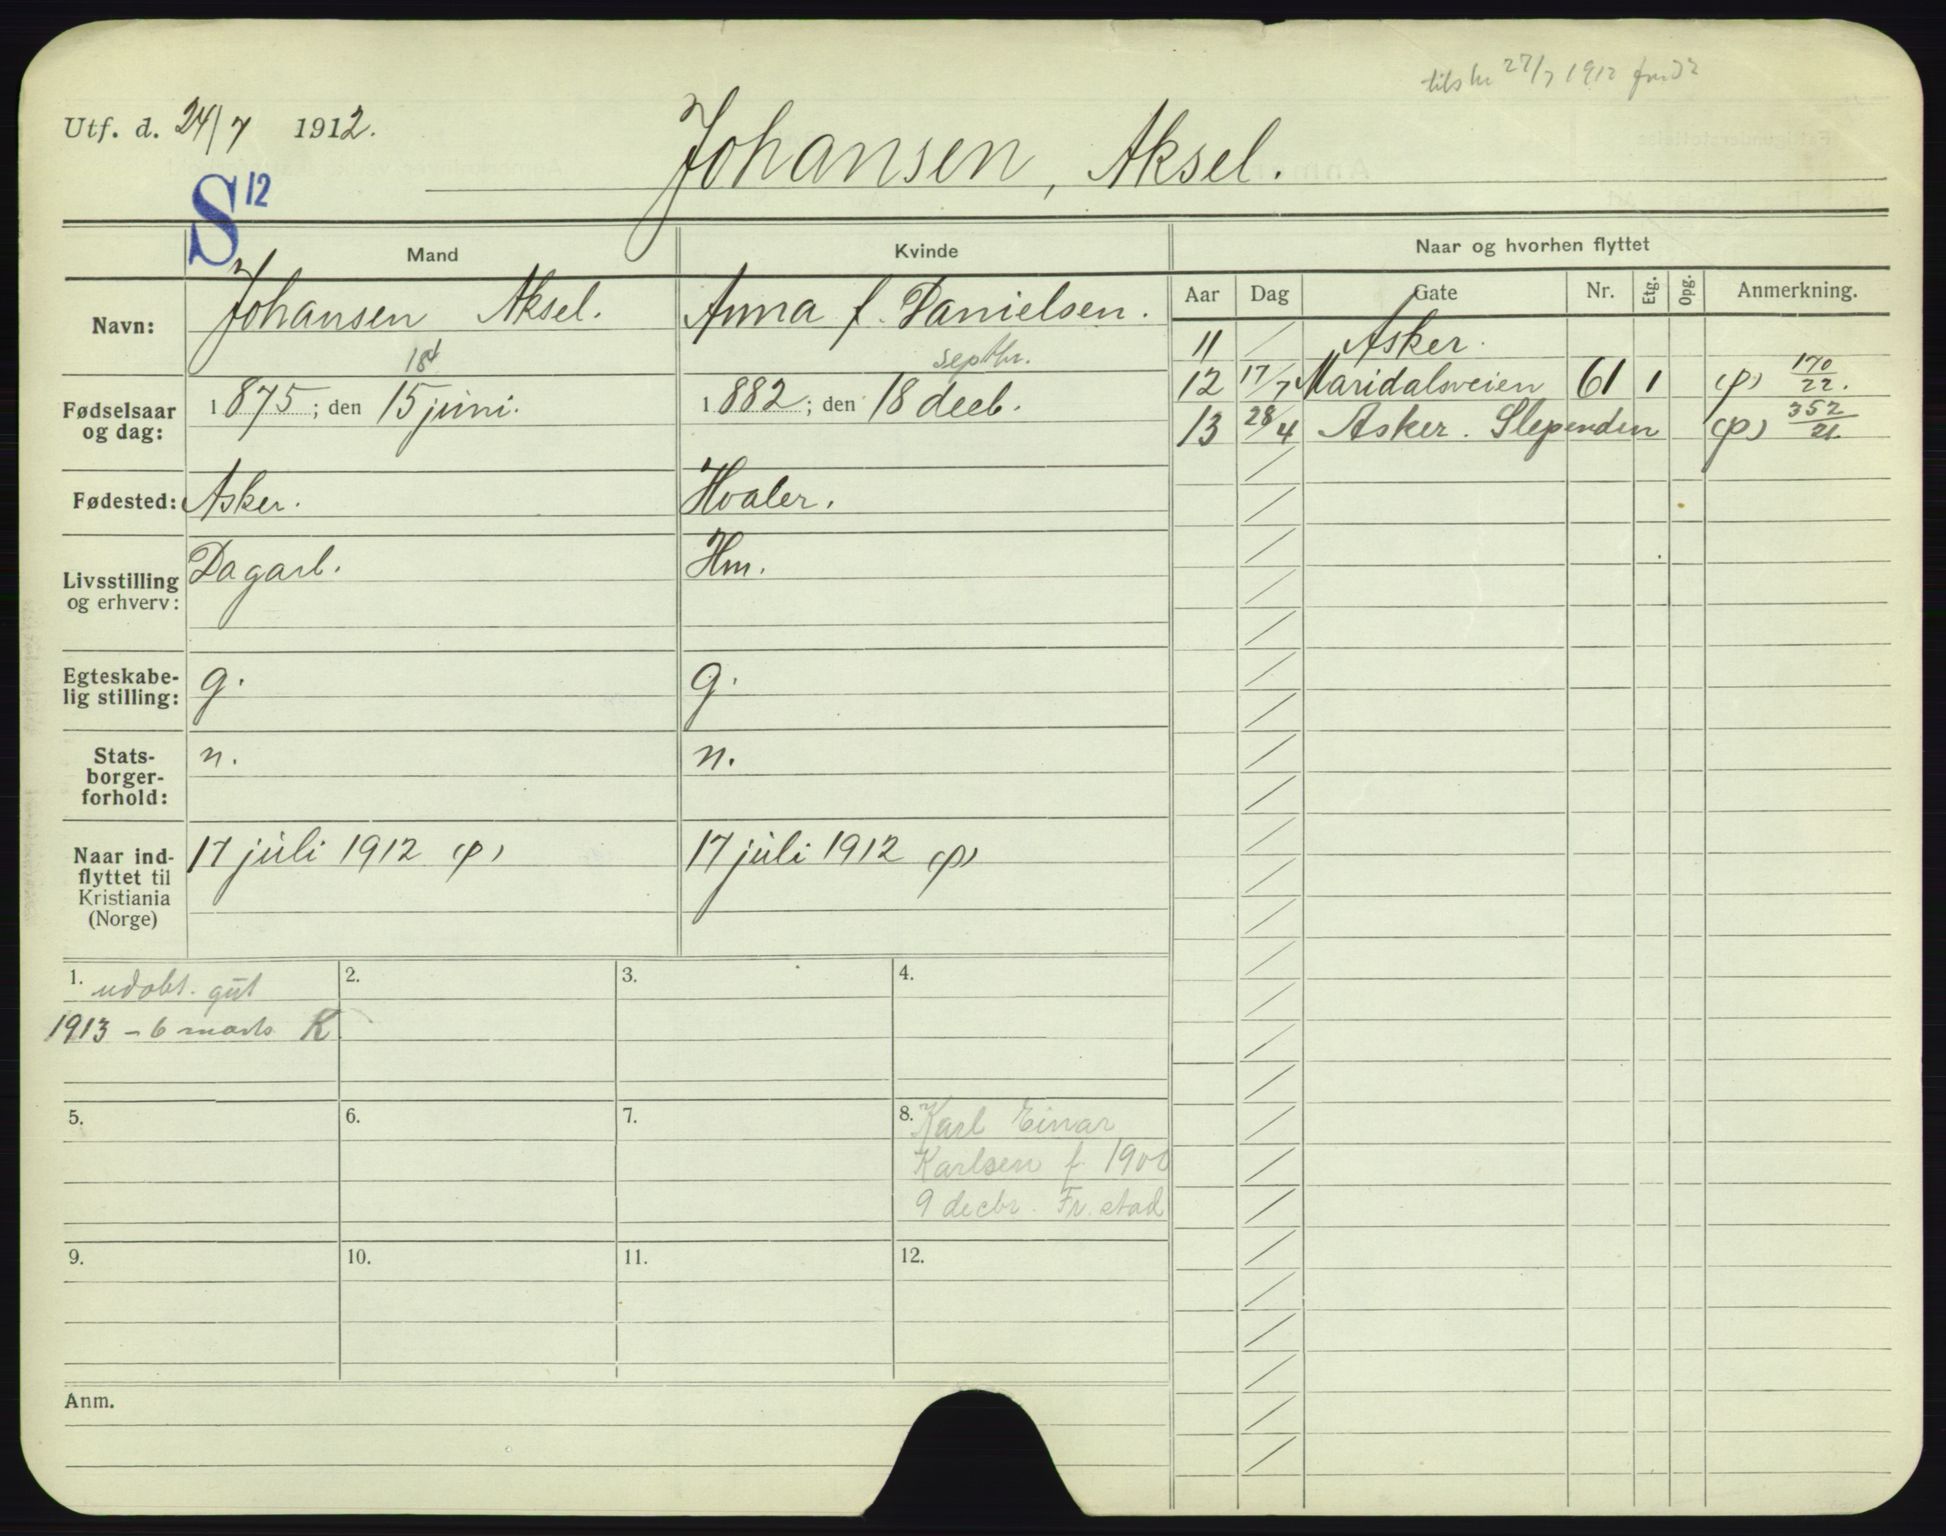 Utf. d. 24/7 1912.
27/7 1912
Johansen, Aksel.
S 12
Mand
Kvinde
Naar og hvorhen flyttet
Navn:
Johansen Aksel.
Anna f. Danielsen.
18
septbr.
Fødselsaar og dag:
1875; den 15 juni.
1882; den 18 decb.
Fødested:
Asker.
Hvaler.
Livsstilling og erhverv:
Dagarb.
Hm.
Egteskabe-
lig stilling:
g.
g.
Stats-
borger-
forhold:
n.
n.
Naar ind-
flyttet til
Kristiania
(Norge)
17 juli 1912 (p)
17 juli 1912 (p)
Aar Dag Gate Nr. Etg. Opg. Anmerkning.
11 / Asker.
12 17/7 Maridalsveien 61 1 (p) 170/22.
13 28/4 Asker. Slependen (p) 352/21.
1. udøbt. gut
1913 - 6 marts K
2.
3.
4.
5.
6.
7.
8. Karl Einar
Karlsen f. 1900
9 decbr. Fr.stad
9.
10.
11.
12.
Anm.